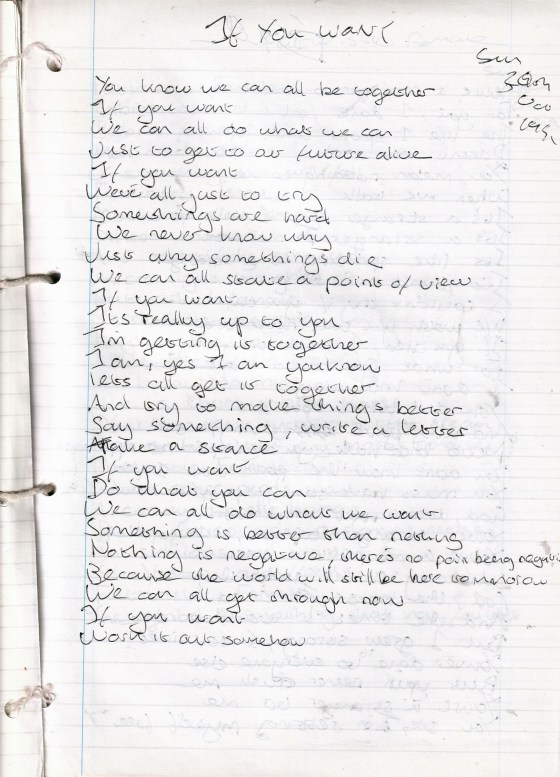 If You Want
Sun
30th
Oct
You know we can all be together
If you want
We can all do what we can
Just to get to our future alive
If you want
Were all just to try
Somethings are hard
We never know why
Just why somethings die
We can all state a point of view
If you want
Its really up to you
Im getting it together
I am, yes I am you know
lets all get it together
And try to make things better
Say something, write a letter
Make a stance
If you want
Do what you can
We can all do what we want
Something is better than nothing
Nothing is negative, there's no point being
Because the world will still be here tomorrow
We can all get through now
If you want
Work it out somehow